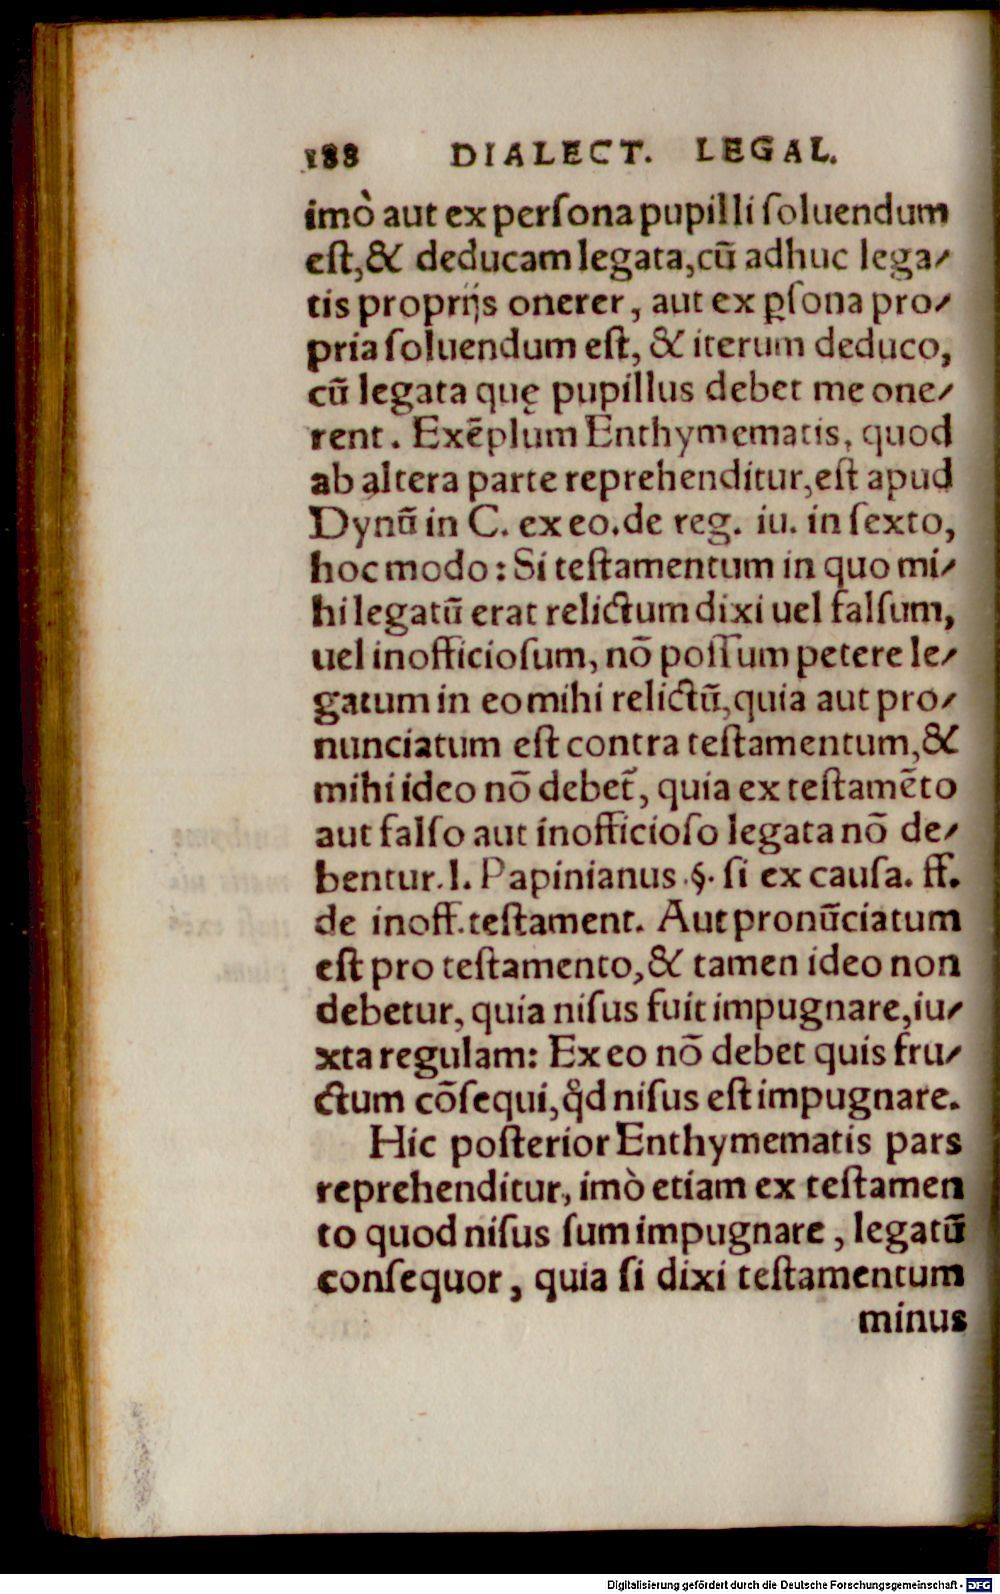 188 DIALECT. LEGAL.
imò aut ex perſona pupilli ſoluendum
eſt, & deducam legata, cũ adhuc lega⸗
tis proprijs onerer, aut ex ꝑſona pro⸗
pria ſoluendum eſt, & iterum deduco,
cũ legata quę pupillus debet me one⸗
rent. Exẽplum Enthymematis, quod
ab altera parte reprehenditur, eſt apud
Dynũ in C. ex eo. de reg. iu. in ſexto,
hoc modo: Si teſtamentum in quo mi⸗
hi legatũ erat relictum dixi uel falſum,
uel inofficioſum, nõ poſſum petere le⸗
gatum in eo mihi relictũ, quia aut pro⸗
nunciatum eſt contra teſtamentum, &
mihi ideo nõ debet᷑, quia ex teſtamẽto
aut falſo aut inofficioſo legata nõ de⸗
bentur. l. Papinianus .§. ſi ex cauſa. ff.
de inoff. teſtament. Aut pronũciatum
eſt pro teſtamento, & tamen ideo non
debetur, quia niſus fuit impugnare, iu⸗
xta regulam: Ex eo nõ debet quis fru⸗
ctum cõſequi, qͦd niſus eſt impugnare.
Hic poſterior Enthymematis pars
reprehenditur, imò etiam ex teſtamen
to quod niſus ſum impugnare, legatũ
conſequor, quia ſi dixi teſtamentum
minus
Digitalisierung gefördert durch die Deutsche Forschungsgemeinschaft - DFG